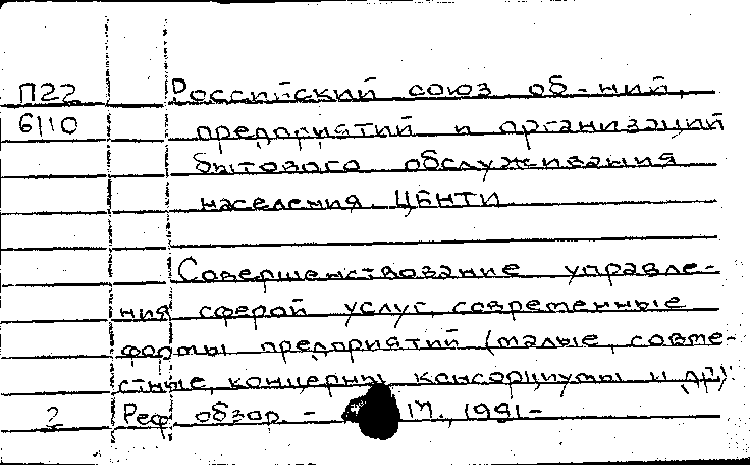 П22 Российский союз об-ний,
6110 предприятий и организаций
бытового обслуживания
населения. ЦБНТИ
Совершенствование управле-
ния сферой услуг, современные
формы предприятий (малые, совме-
стные, концерны, консорциумы и др.):
2 Реф. обзор. - М., 1991-